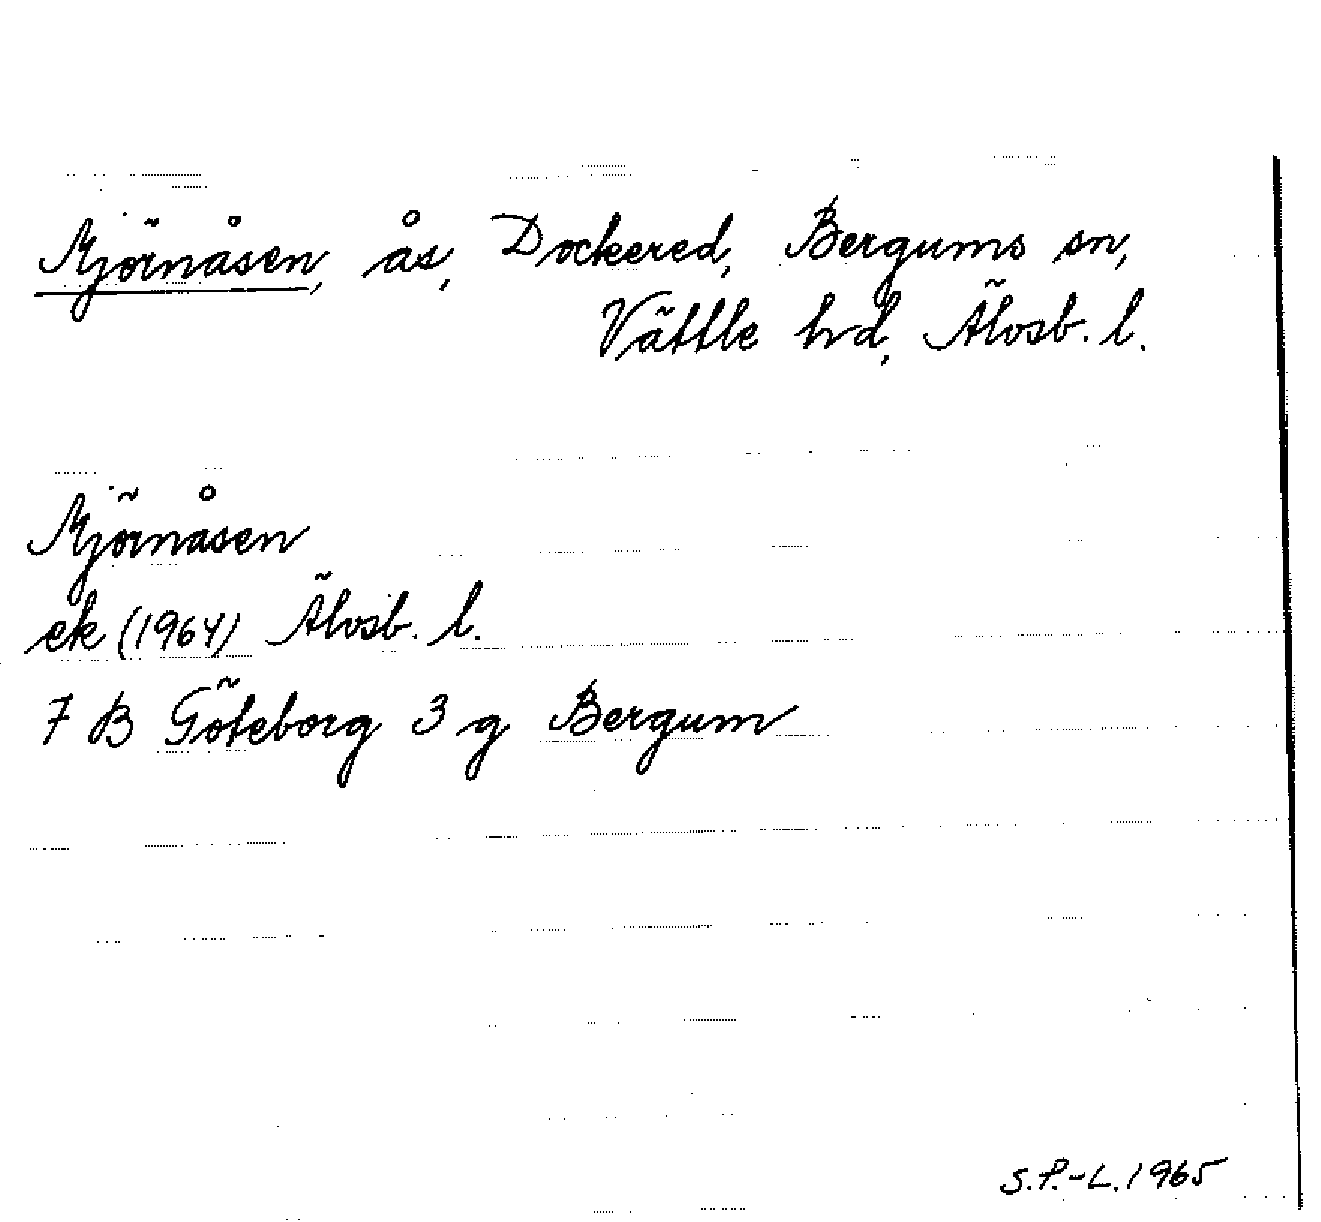 Mjörnåsen, ås, Dockered, Bergums sn,
Vättle hd, Älvsb. l.
Mjörnåsen
ek (1964) Älvsb. l.
7 B Göteborg 3 g Bergum
S.P.-L. 1965